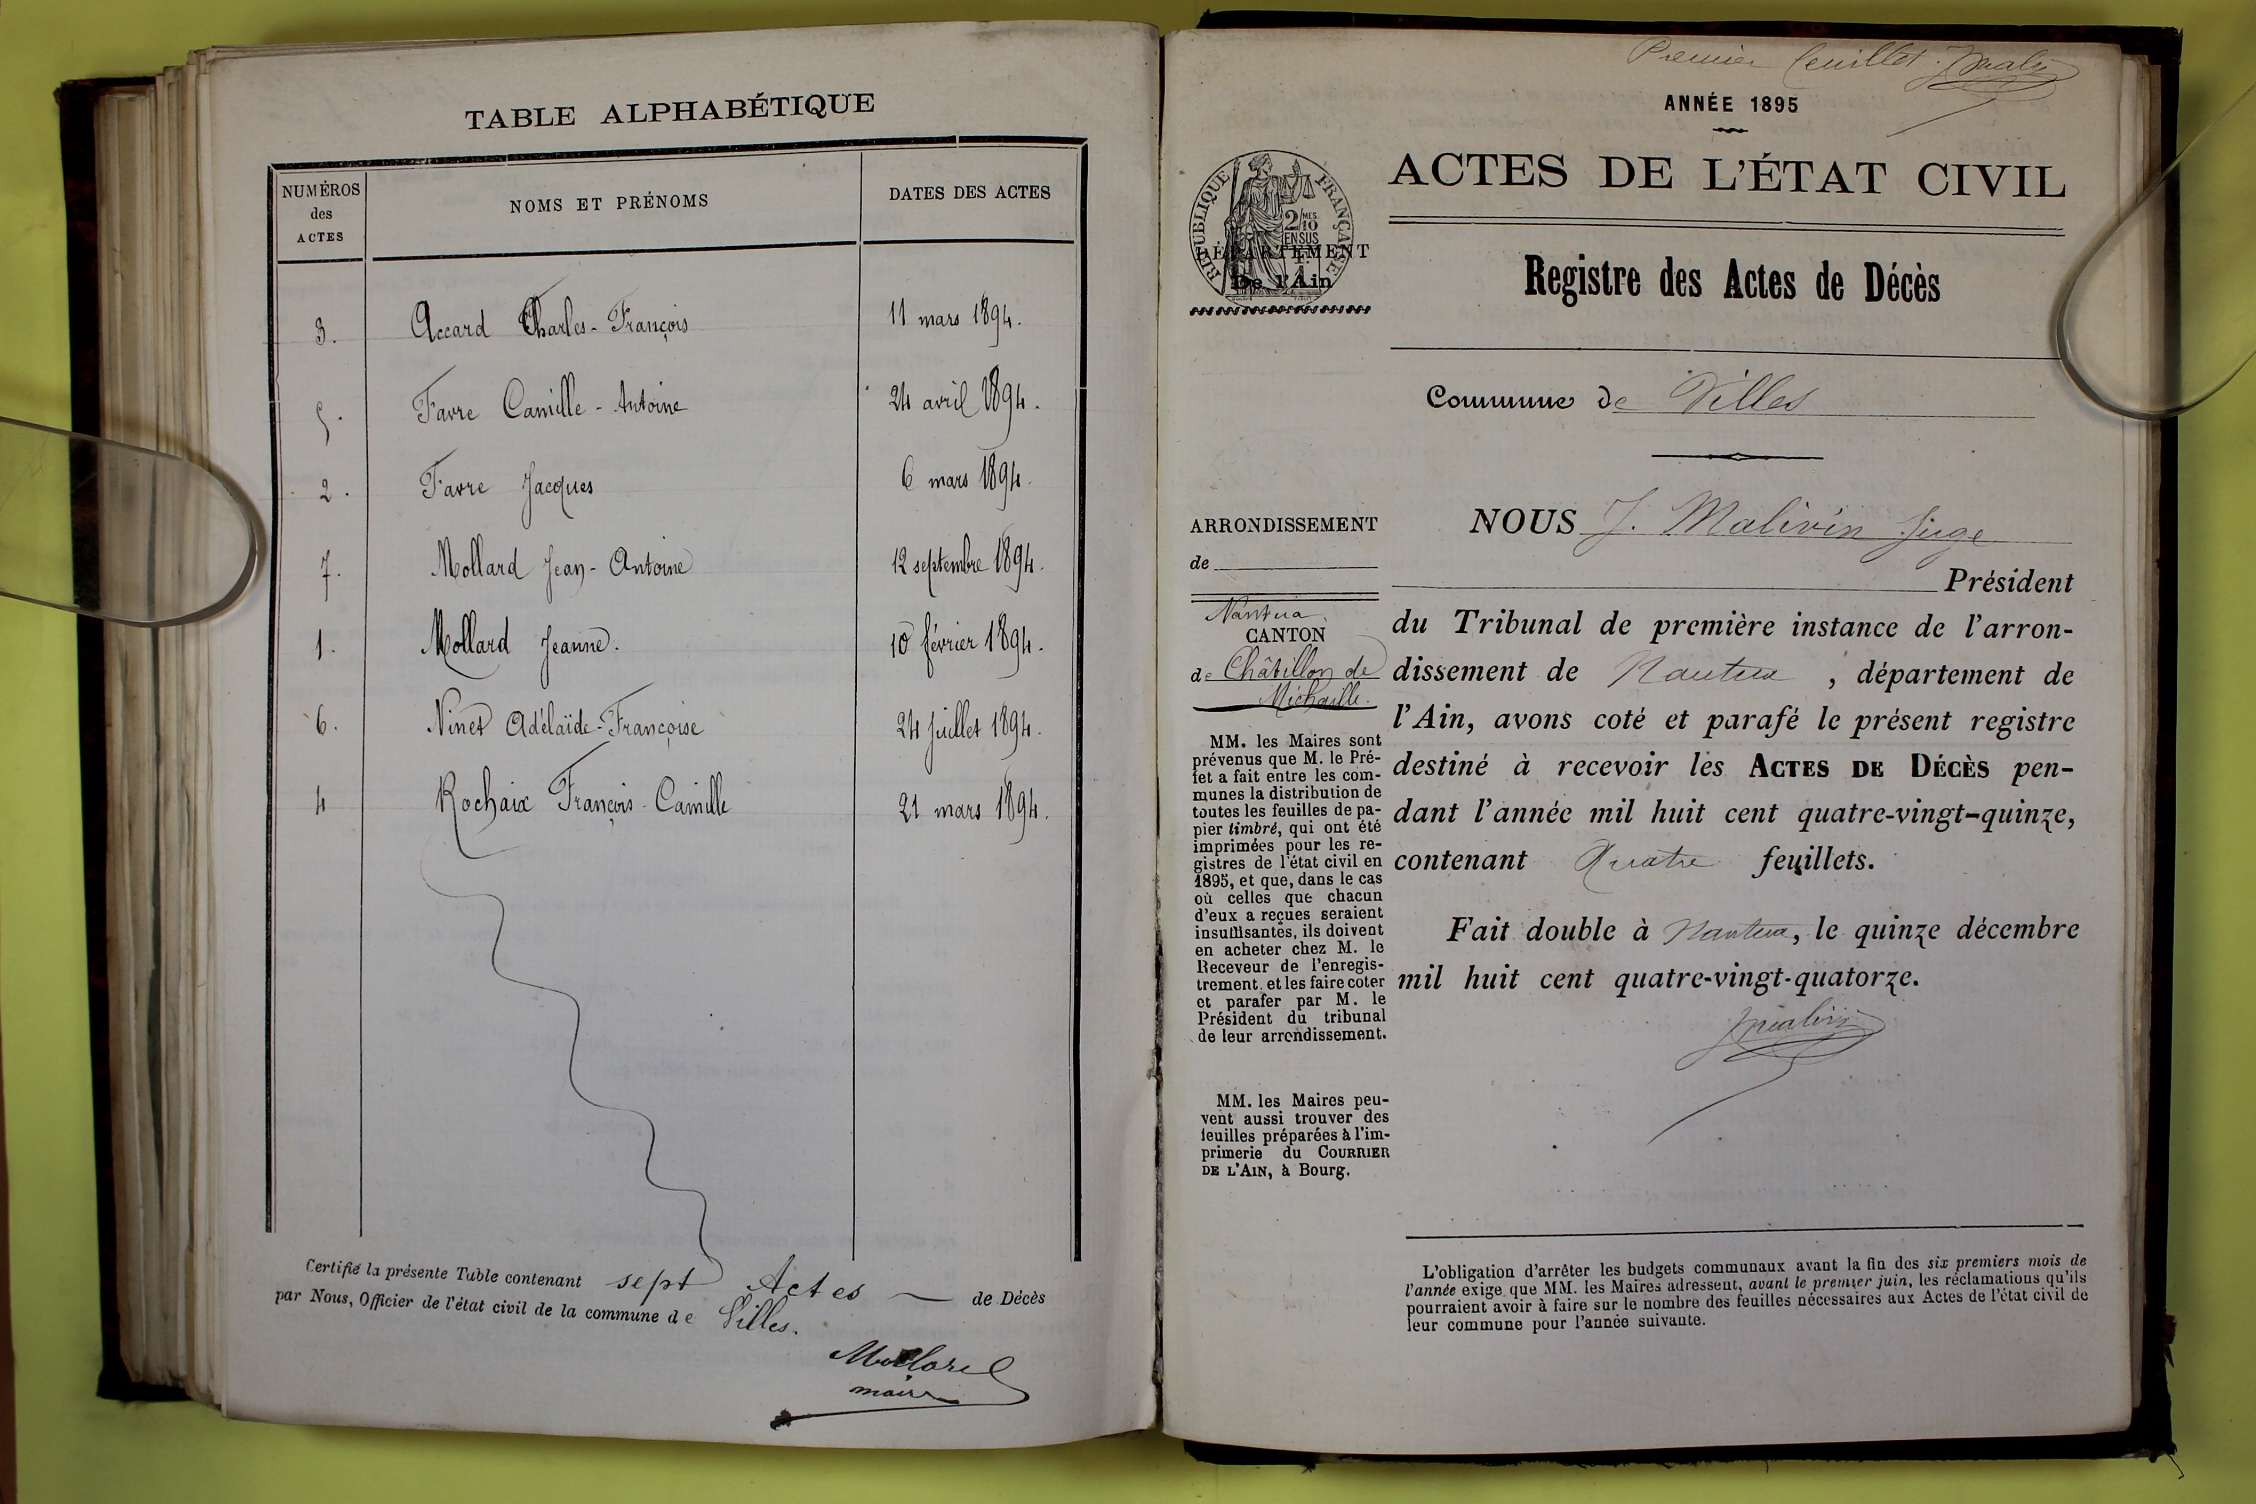 TABLE ALPHABÉTIQUE
NUMÉROS
des
ACTES
NOMS ET PRÉNOMS
DATES DES ACTES
3. Accard Charles-François 11 mars 1894.
5. Favre Camille-Antoine 24 avril 1894.
2. Favre Jacques 6 mars 1894.
7. Mollard Jean-Antoine 12 septembre 1894.
1. Mollard Jeanne. 10 février 1894.
6. Ninet Adélaïde-Françoise 24 juillet 1894.
4 Rochaix François-Camille 21 mars 1894.
Certifié la présente Table contenant sept Actes de Décès
par Nous, Officier de l'état civil de la commune de Villes.
Mollard
maire
Premier feuillet.
ANNÉE 1895
ACTES DE L'ÉTAT CIVIL
RÉPUBLIQUE FRANÇAISE
2/10
EN SUS
DÉPARTEMENT
De l'Ain
Registre des Actes de Décès
Commune de Villes
ARRONDISSEMENT
de
Nantua
CANTON
de Châtillon de
Michaille.
MM. les Maires sont
prévenus que M. le Pré-
fet a fait entre les com-
munes la distribution de
toutes les feuilles de pa-
pier timbré, qui ont été
imprimées pour les re-
gistres de l'état civil en
1895, et que, dans le cas
où celles que chacun
d'eux a reçues seraient
insuffisantes, ils doivent
en acheter chez M. le
Receveur de l'enregis-
trement, et les faire coter
et parafer par M. le
Président du tribunal
de leur arrondissement.
MM. les Maires peu-
vent aussi trouver des
feuilles préparées à l'im-
primerie du COURRIER
DE L'AIN, à Bourg.
NOUS J. Malivin Juge
Président
du Tribunal de première instance de l'arron-
dissement de Nantua, département de
l'Ain, avons coté et parafé le présent registre
destiné à recevoir les ACTES DE DÉCÈS pen-
dant l'année mil huit cent quatre-vingt-quinze,
contenant Quatre feuillets.
Fait double à Nantua, le quinze décembre
mil huit cent quatre-vingt-quatorze.
JMalivin
L'obligation d'arrêter les budgets communaux avant la fin des six premiers mois de
l'année exige que MM. les Maires adressent, avant le premier juin, les réclamations qu'ils
pourraient avoir à faire sur le nombre des feuilles nécessaires aux Actes de l'état civil de
leur commune pour l'année suivante.